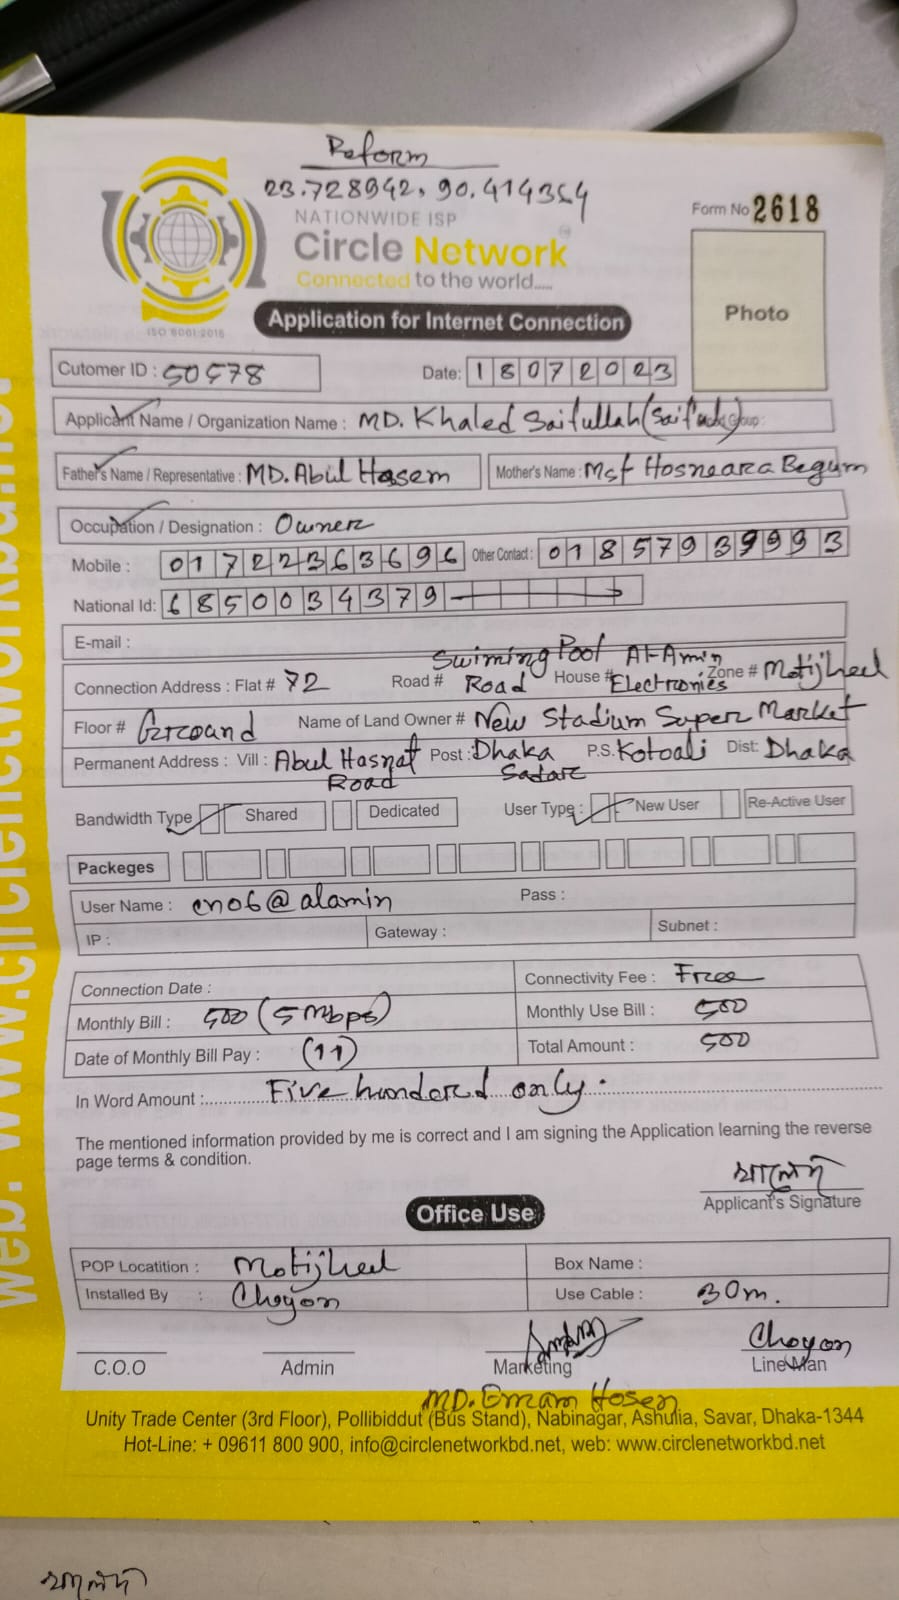 Reform
23.728942, 90.414354
NATIONWIDE ISP
Form No 2618
Circle Network
Connected to the world.....
ISO 9001:2015
Application for Internet Connection
Photo
Cutomer ID : 50578 Date: 18072023
Applicant Name / Organization Name : MD. Khaled Saifullah
Father's Name / Representative : MD. Abul Hasem Mother's Name : Mst Hosneara Begum
Occupation / Designation : Owner
Mobile : 01722363696 Other Contact : 01857939993
National Id: 6850034379
E-mail :
Connection Address : Flat # 72 Road # Swiming Pool Road House # Al-Amin Electronies Zone # Motijheel
Floor # Groand Name of Land Owner # New Stadium Super Market
Permanent Address : Vill : Abul Hasnat Road Post : Dhaka Sadar P.S. Kotoali Dist: Dhaka
Bandwidth Type Shared Dedicated User Type : New User Re-Active User
Packeges
User Name : cno6@alamin Pass :
IP : Gateway : Subnet :
Connection Date : Connectivity Fee : Free
Monthly Bill : 500 (5 Mbps) Monthly Use Bill : 500
Date of Monthly Bill Pay : (11) Total Amount : 500
In Word Amount : Five hundered only.
The mentioned information provided by me is correct and I am signing the Application learning the reverse
page terms & condition.
Applicant's Signature
Office Use
POP Locatition : Motijheel Box Name :
Installed By : Choyon Use Cable : 30m.
Choyon
C.O.O Admin Marketing Line Man
MD. Emam Hosen
Unity Trade Center (3rd Floor), Pollibiddut (Bus Stand), Nabinagar, Ashulia, Savar, Dhaka-1344
Hot-Line: + 09611 800 900, info@circlenetworkbd.net, web: www.circlenetworkbd.net